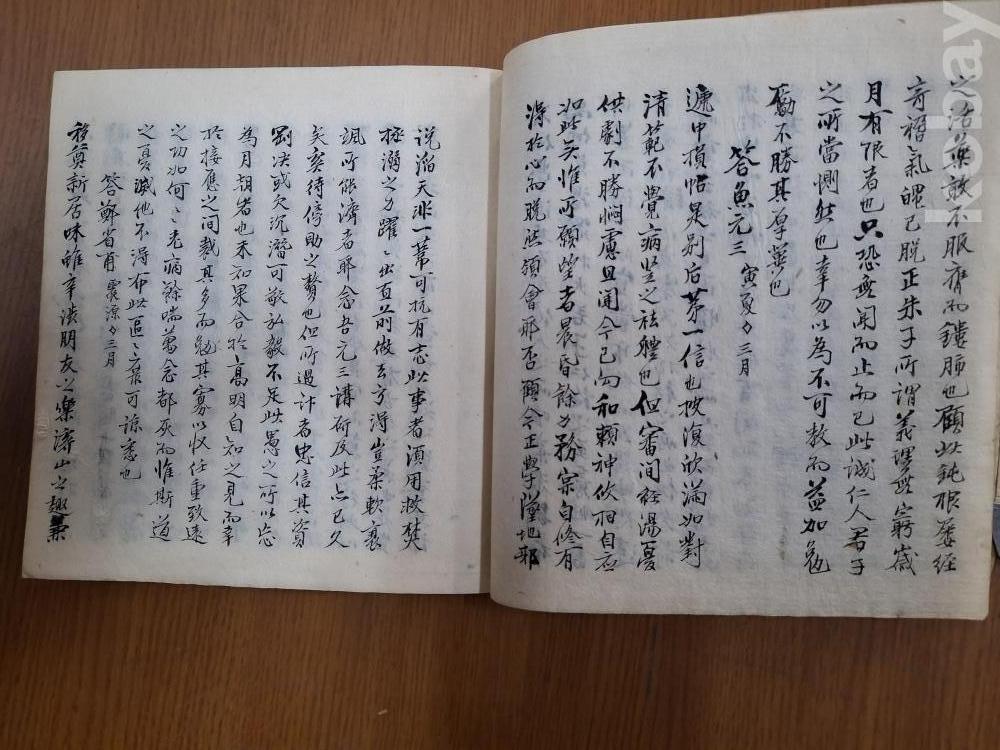 之治藥敢不服膺而鏤肺也顧此鈍根屡經
奇褶氣魄已脫正朱子所謂義理無窮歲
月有限者也只恐無聞而止而已此誠仁人君子
之所當惻然也幸勿以為不可教而益加勉
勵不勝其厚幸也
答魚元三 寅夏 三月
遞中損帖是別后第一信也披復欣滿如對
清範不覺病豎之祛軆也但審間經湯憂
供劇不勝悶慮且聞今已勿和賴神攸相自应
如此矣惟可願望者晨昏餘力務宗自修有
得於心而脫然領會耶否顧今正學墜地邪
說滔天非一葦可抗有志此事者須用救焚
拯溺之力躍〻出直前做去方得豈柔軟襄
颯所能濟者耶念吾元三講研及此占已久
矣奚待傍助之贅也但所過計者忠信其資
剛决或欠沉潛可敬弘毅不足此愚之所以忘
為月朝岩也未知果合於高明自知之見而幸
於接應之間裁其多而勉其寡以收任重致遠
之功如何〻〻老病餘喘萬念都灰而惟斯道
之憂減他不得布此區〻京可諒悉也
答鄭省有 震源 三月
移奠新居味雖辛淡朋友之樂濟山之趣兼
kobay